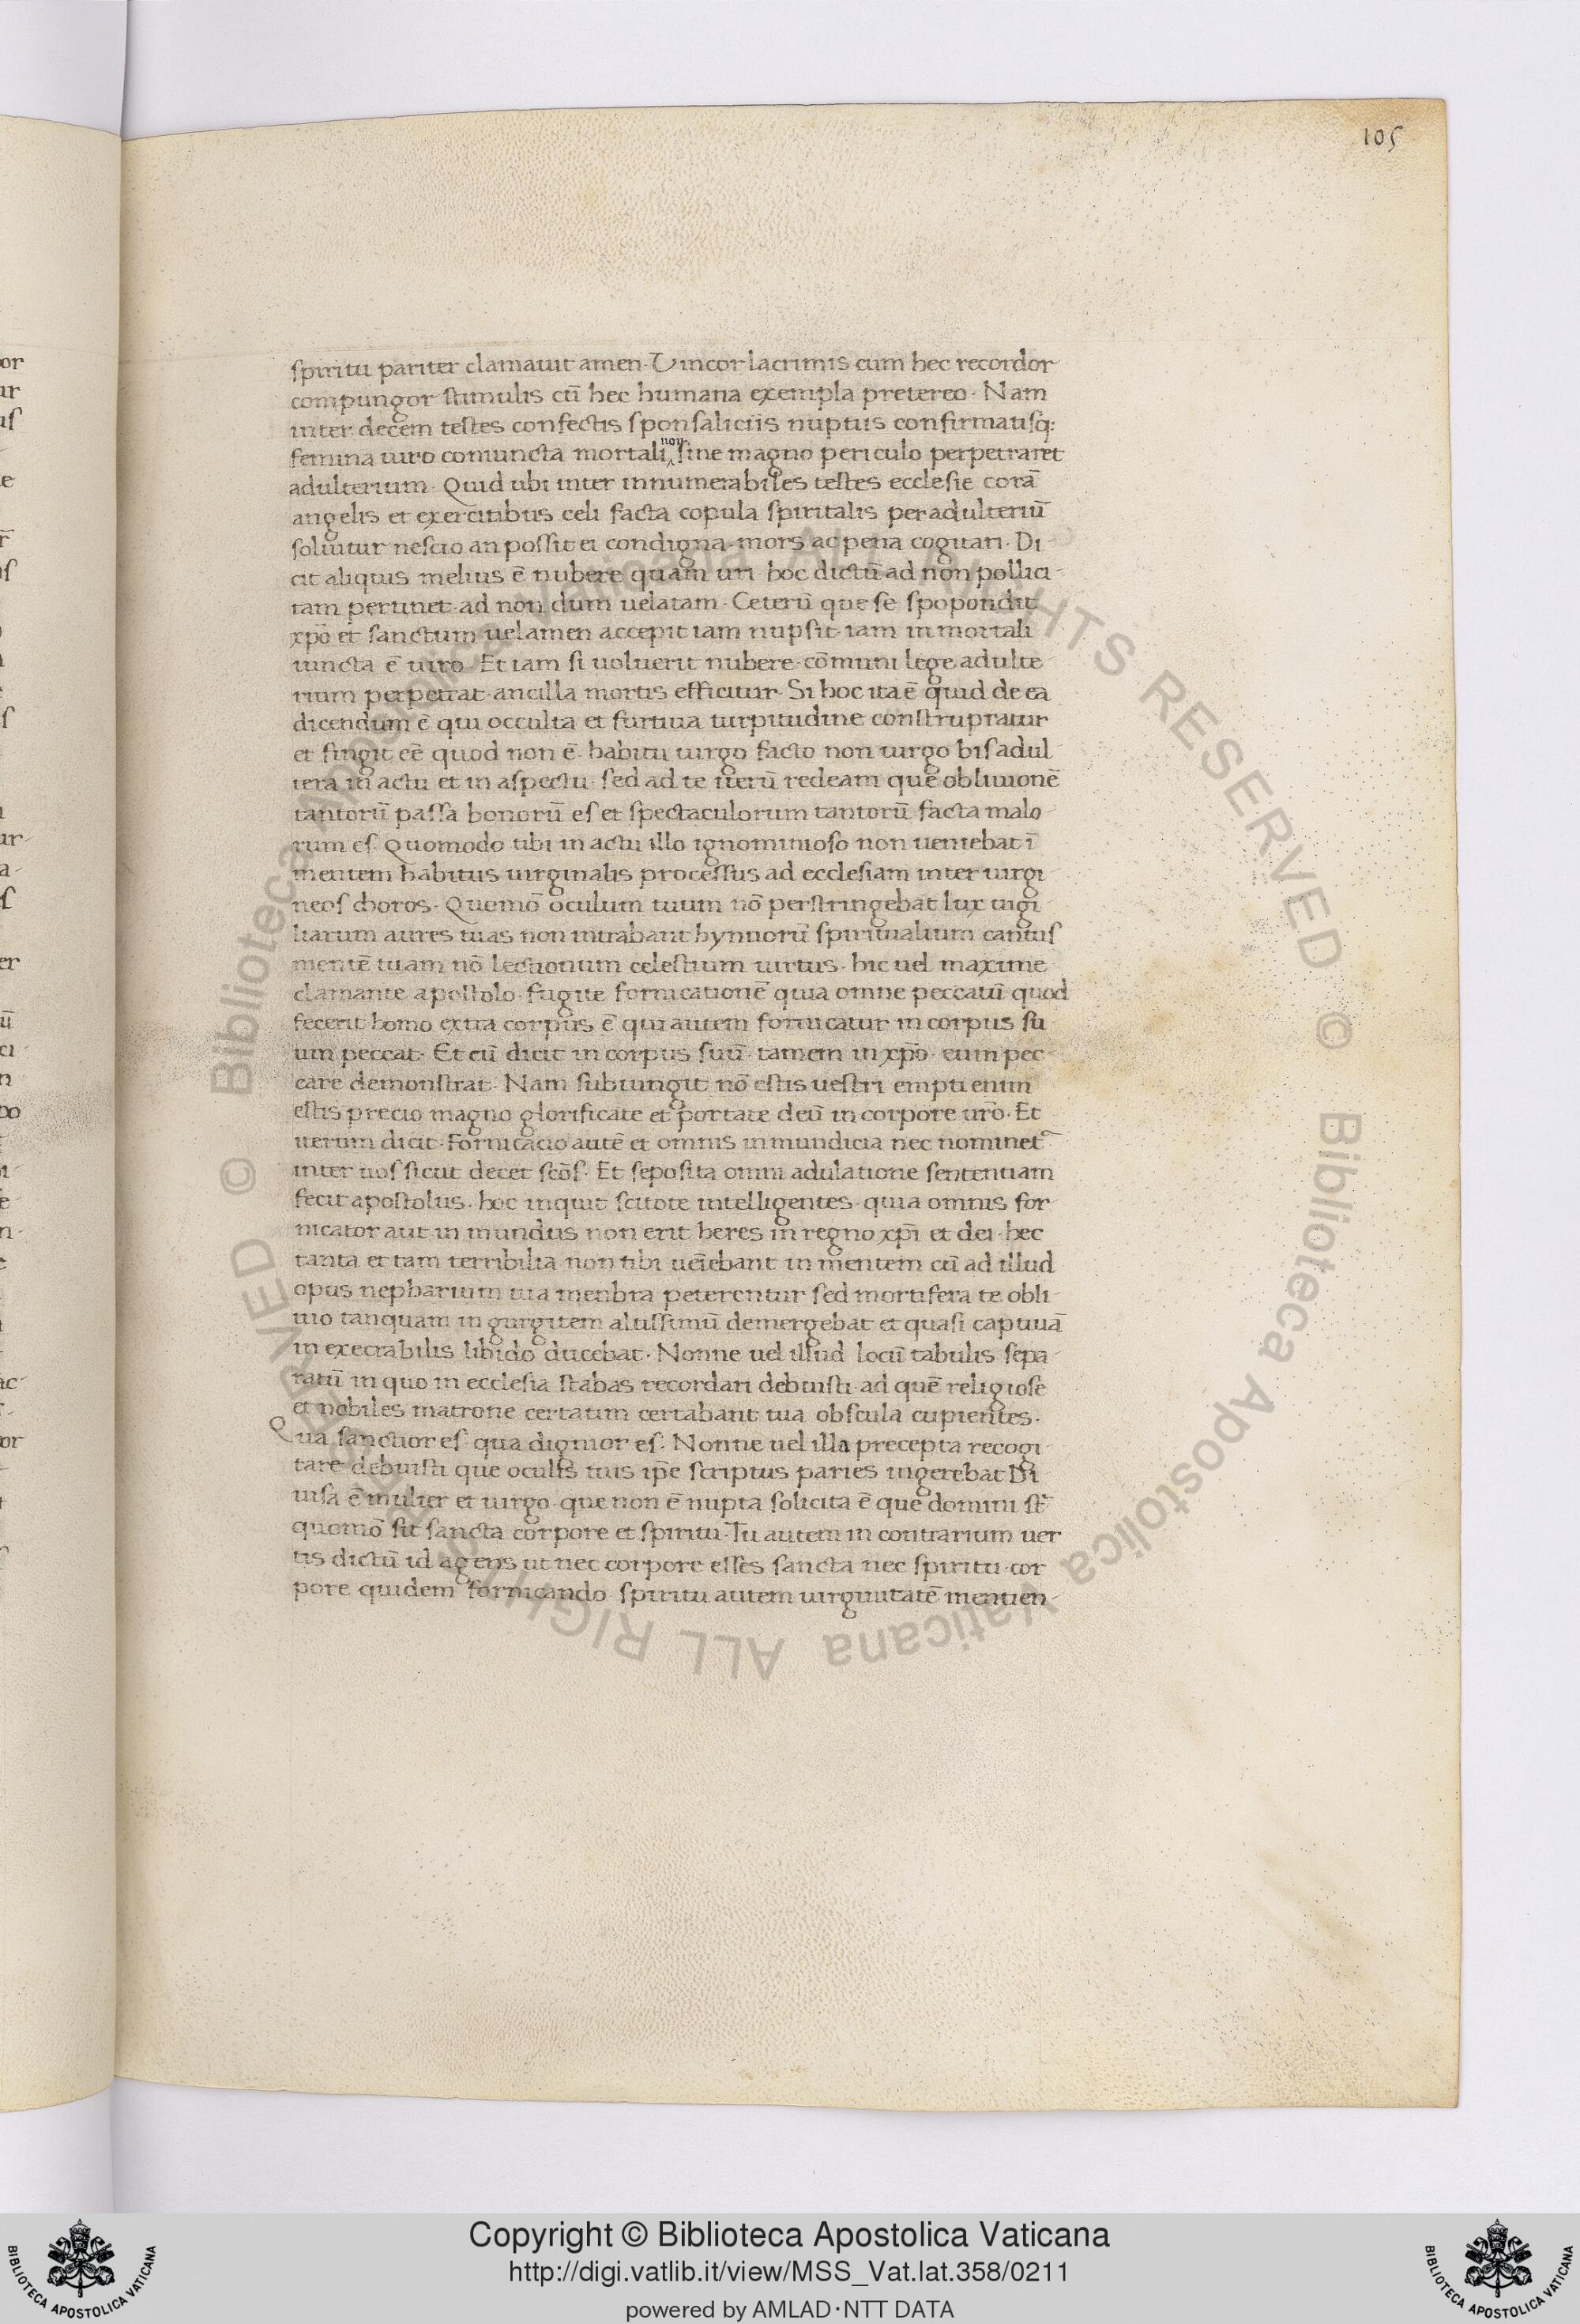 105
spiritu pariter clamauit amen. Vincor lacrimis cum hec recordor
compungor stimulis cū hec humana exempla pretereo. Nam
inter decem testes confectis sponsaliciis nuptiis confirmatisq:
femina uiro coniuncta mortali non sine magno periculo perpetraret
adulterium. Quid ubi inter innumerabiles testes ecclesie corā
angelis et exercitibus celi facta copula spiritalis per adulteriū
soluitur nescio an possit ei condigna mors ac pena cogitari. Di
cit aliquis melius ē nubere quam uri. hoc dictū ad non pollici-
tam pertinet. ad non dum uelatam. Ceterū que se spopondit
xp̄o et sanctum uelamen accepit iam nupsit. iam inmortali
iuncta ē uiro. Et iam si uoluerit nubere. cōmuni lege adulte
rium perpetrat. ancilla mortis efficitur. Si hoc ita ē quid de ea
dicendum ē qui occulta et furtiua turpitudine construpratur
et fingit eē quod non ē. habitu uirgo facto non uirgo bis adul
tera in actu et in aspectu. sed ad te iterū redeam que obliuionē
tantorū passa bonorū es et spectaculorum tantorū facta malo
rum es. Quomodo tibi in actu illo ignominioso non ueniebat ī
mentem habitus uirginalis processus ad ecclesiam inter uirgi-
neos choros. Quomō oculum tuum nō perstringebat lux uigi
liarum aures tuas non intrabant hymnorū spiritualium cantus
mentē tuam nō lectionum celestium uirtus. hic uel maxime
clamante apostolo. fugite fornicationē quia omne peccatū quod
fecerit homo extra corpus ē qui autem fornicatur in corpus su
um peccat. Et cū dicit in corpus suū. tamem in xp̄o eum pec-
care demonstrat. Nam subiungit nō estis uestri empti enim
estis precio magno glorificate et portate deū in corpore ur̄o. Et
iterum dicit. Fornicacio autē et omnis inmundicia nec nominet᷑
inter uos sicut decet sc̄os. Et seposita omni adulatione sententiam
fecit apostolus. hoc inquit scitote intelligentes. quia omnis for
nicator aut in mundus non erit heres in regno xp̄i et dei. hec
tanta et tam terribilia non tibi ueīebant in mentem cū ad illud
opus nepharium tua menbra peterentur sed mortifera te obli-
uio tanquam in gurgitem altissimū demergebat et quasi captiuā
in execrabilis libido ducebat. Nonne uel illud locū tabulis sepa-
ratū in quo in ecclesia stabas recordari debuisti. ad quē religiose
et nobiles matrone certatim certabant tua obscula cupientes.
Qua sanctior es qua dignior es. Nonne uel illa precepta recogi-
tare debuisti que oculis tuis ip̄e scriptus paries ingerebat Di
uisa ē mulier et uirgo. que non ē nupta solicita ē que domini st̄
quomō sit sancta corpore et spiritu. Tu autem in contrarium uer
tis dictū id agens ut nec corpore esses sancta nec spiritu. cor
pore quidem fornicando spiritu autem uirginitatē mentien-
© Biblioteca Apostolica Vaticana ALL RIGHTS RESERVED
© Biblioteca Apostolica Vaticana ALL RIGHTS RESERVED
Copyright © Biblioteca Apostolica Vaticana
http://digi.vatlib.it/view/MSS_Vat.lat.358/0211
powered by AMLAD·NTT DATA
BIBLIOTECA APOSTOLICA VATICANA
BIBLIOTECA APOSTOLICA VATICANA